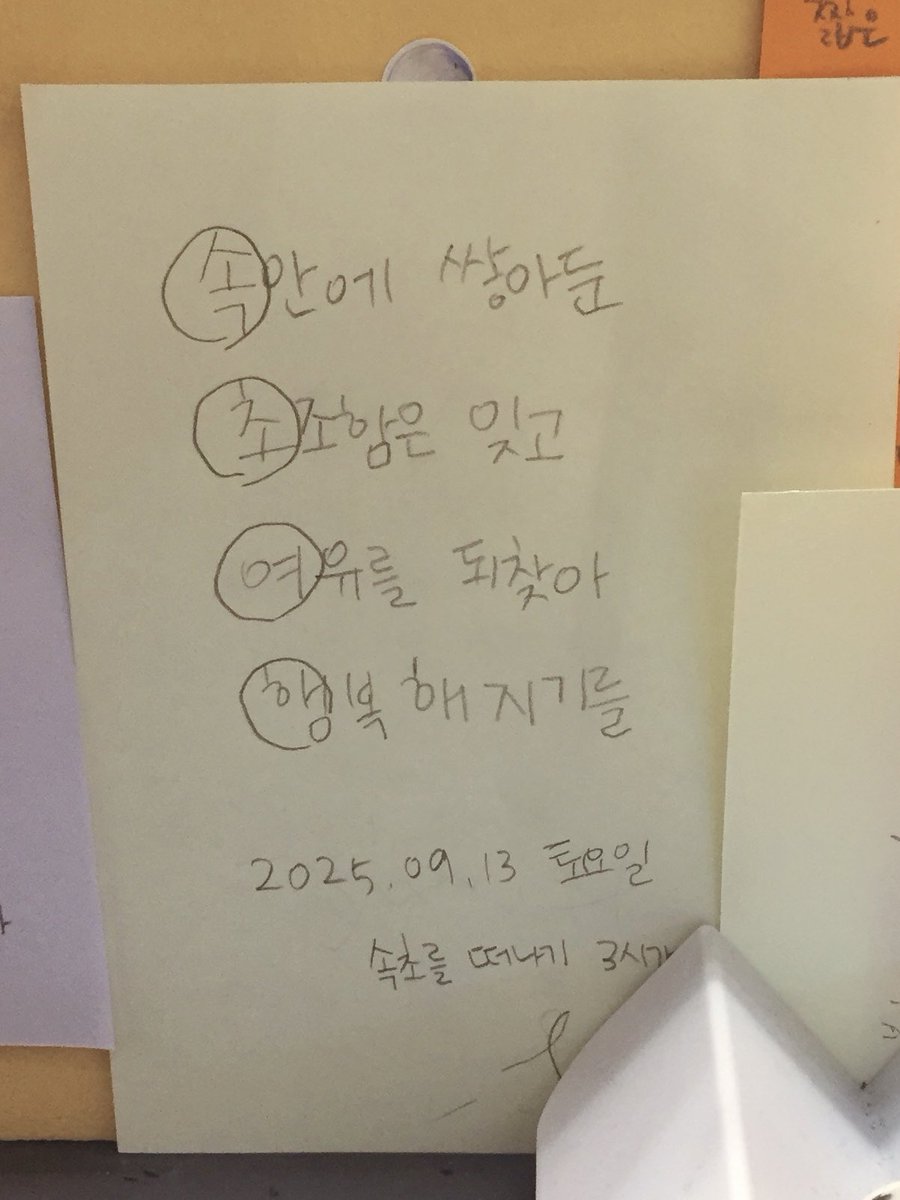 짧은
속안에 쌓아둔
초조함은 잊고
여유를 되찾아
행복해지기를
2025.09.13 토요일
속초를 떠나기 3시